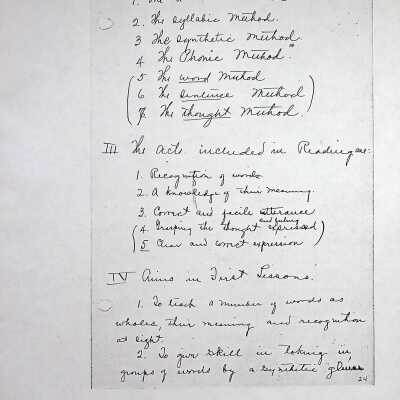 2. The Syllabic Method.
3 The Synthetic Method
4 The Phonic Method."
5 The word Method
6 The sentence Method
7. The thought Method.
III The Acts included in Reading are:
1. Recognition of words
2. A knowledge of their meaning.
3. Correct and facile utterance
and feeling
4. Grasping the thought expressed
5 Clear and correct expression
IV Aims in First Lessons:
1. To teach a number of words as
wholes, their meaning and recognition
at sight
2. To give skill in taking in
groups of words by a synthetic glance
24